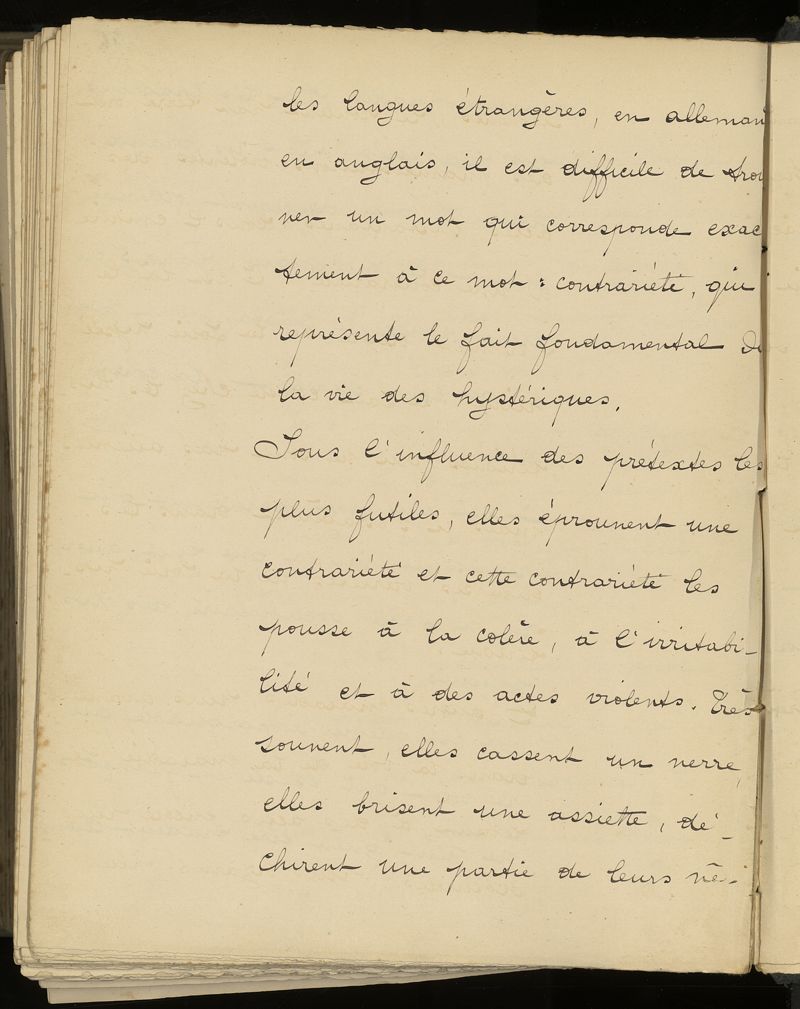 les langues étrangères, en alleman
en anglais, il est difficile de trou
ver un mot qui corresponde exac
tement à ce mot : contrariété, qui
représente le fait fondamental de
la vie des hystériques.
Sous l'influence des prétextes les
plus futiles, elles éprouvent une
contrariété et cette contrariété les
pousse à la colère, à l'irritabi-
lité et à des actes violents. Très
souvent, elles cassent un verre,
elles brisent une assiette, dé-
chirent une partie de leurs vê-